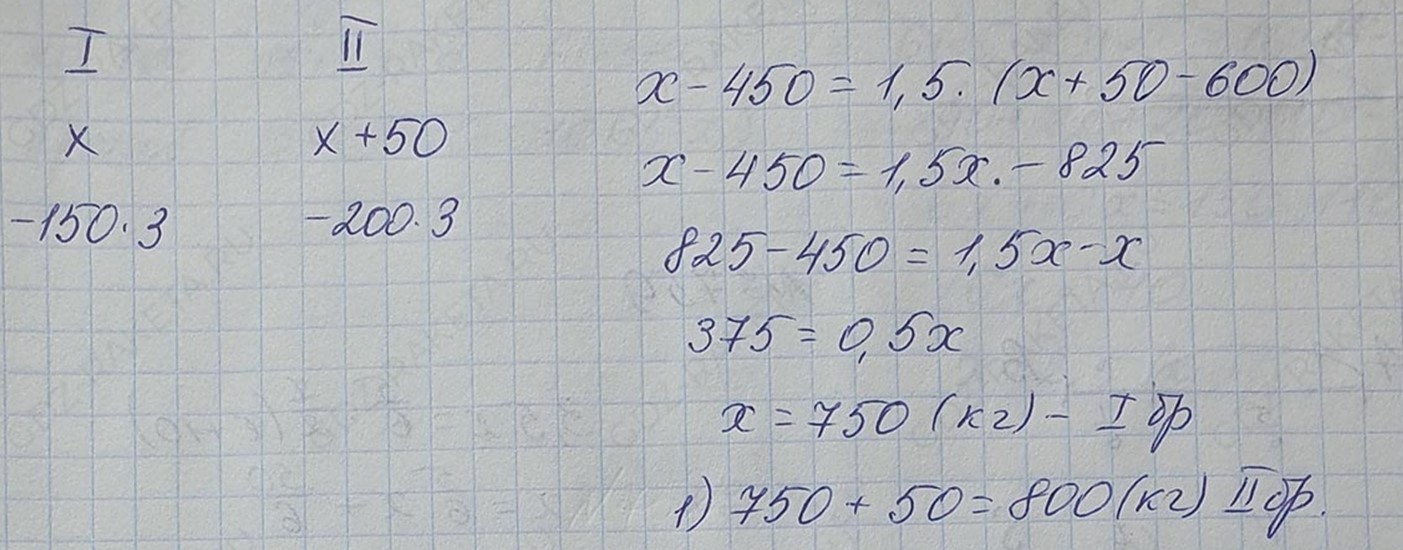 I II
x x + 50
-150·3 -200·3
x - 450 = 1,5. (x + 50 - 600)
x - 450 = 1,5x. - 825
825 - 450 = 1,5x - x
375 = 0,5x
x = 750 (кг) - I бр
1) 750 + 50 = 800 (кг) II бр.